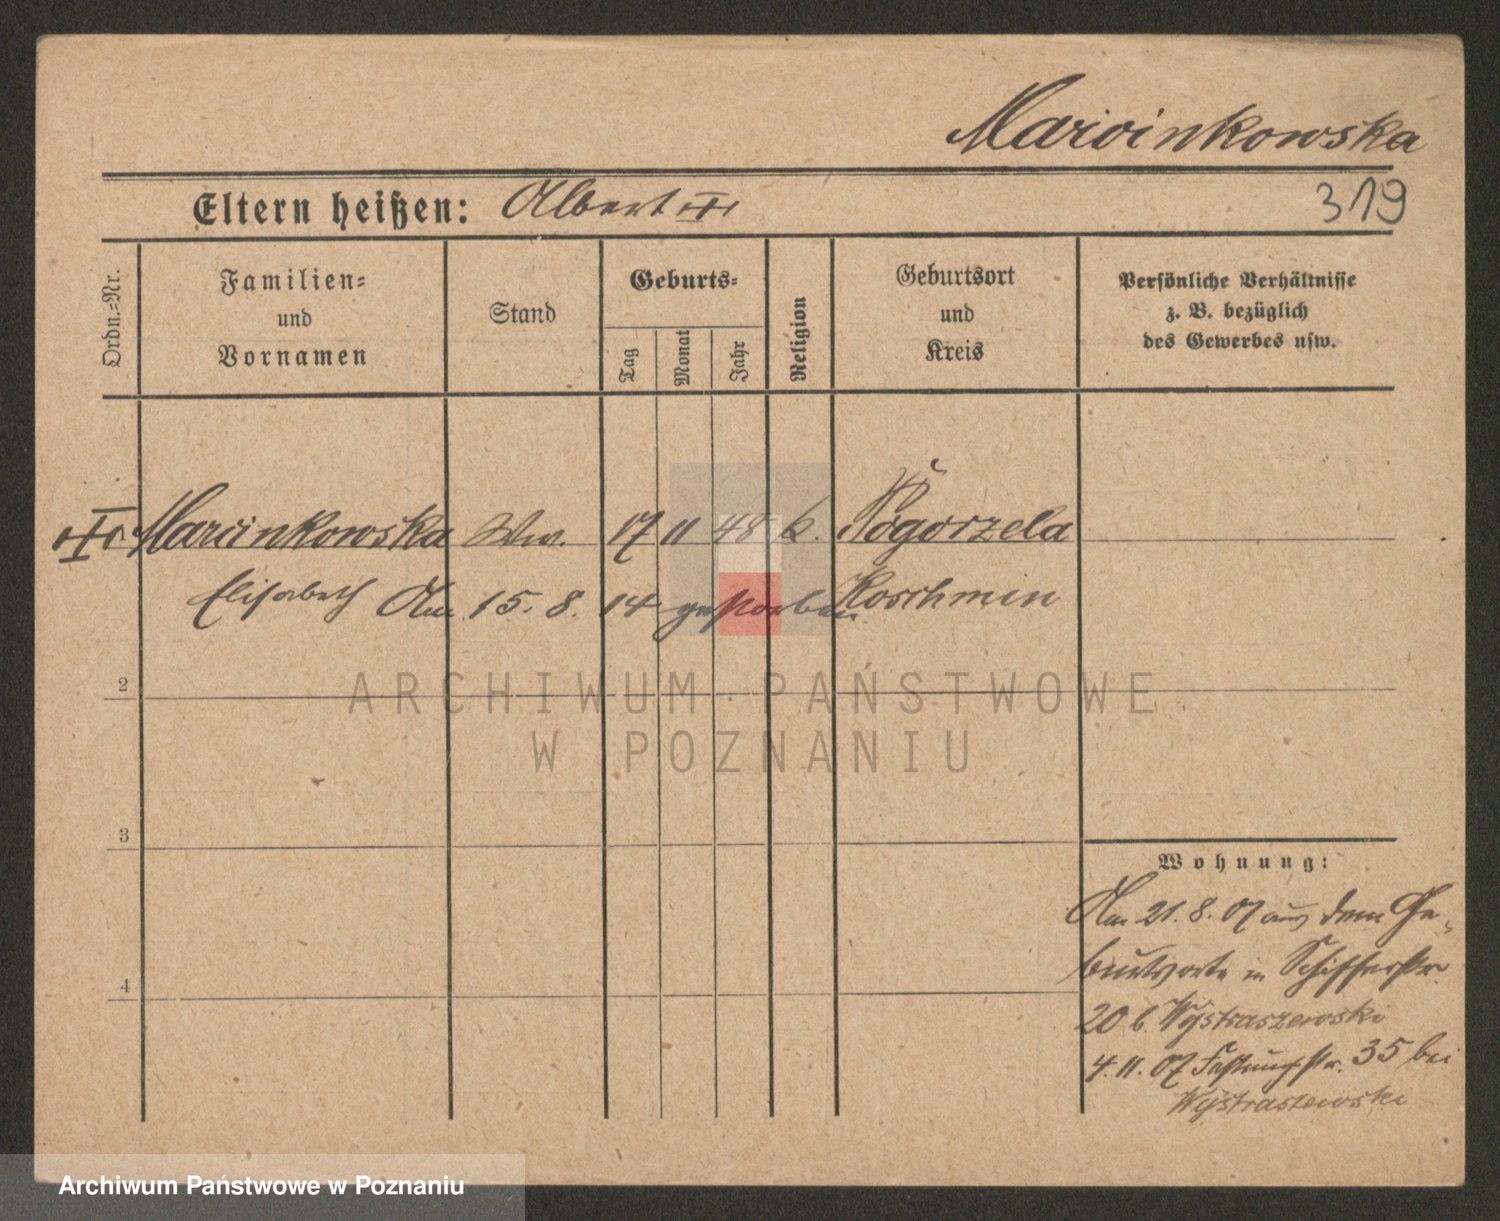 Marcinkowska
Eltern heißen: Albert
319
Ordn.=Nr.
Familien=
und
Vornamen
Stand
Geburts=
Tag
Monat
Jahr
Religion
Geburtsort
und
Kreis
Persönliche Verhältnisse
z. B. bezüglich
des Gewerbes usw.
Marcinkowska Ww. 17 11 48 k. Pogorzela
Elisabeth Am 15. 8. 14 gestorben Koschmin
ARCHIWUM PAŃSTWOWE
W POZNANIU
2
3
4
Wohnung:
Am 21. 8. 07 aus dem Ge-
burtsorte in Schifferstr.
20 b. Wystraszewski
4. 11. 07 Festungsstr. 35 bei
Wystraszewski
Archiwum Państwowe w Poznaniu